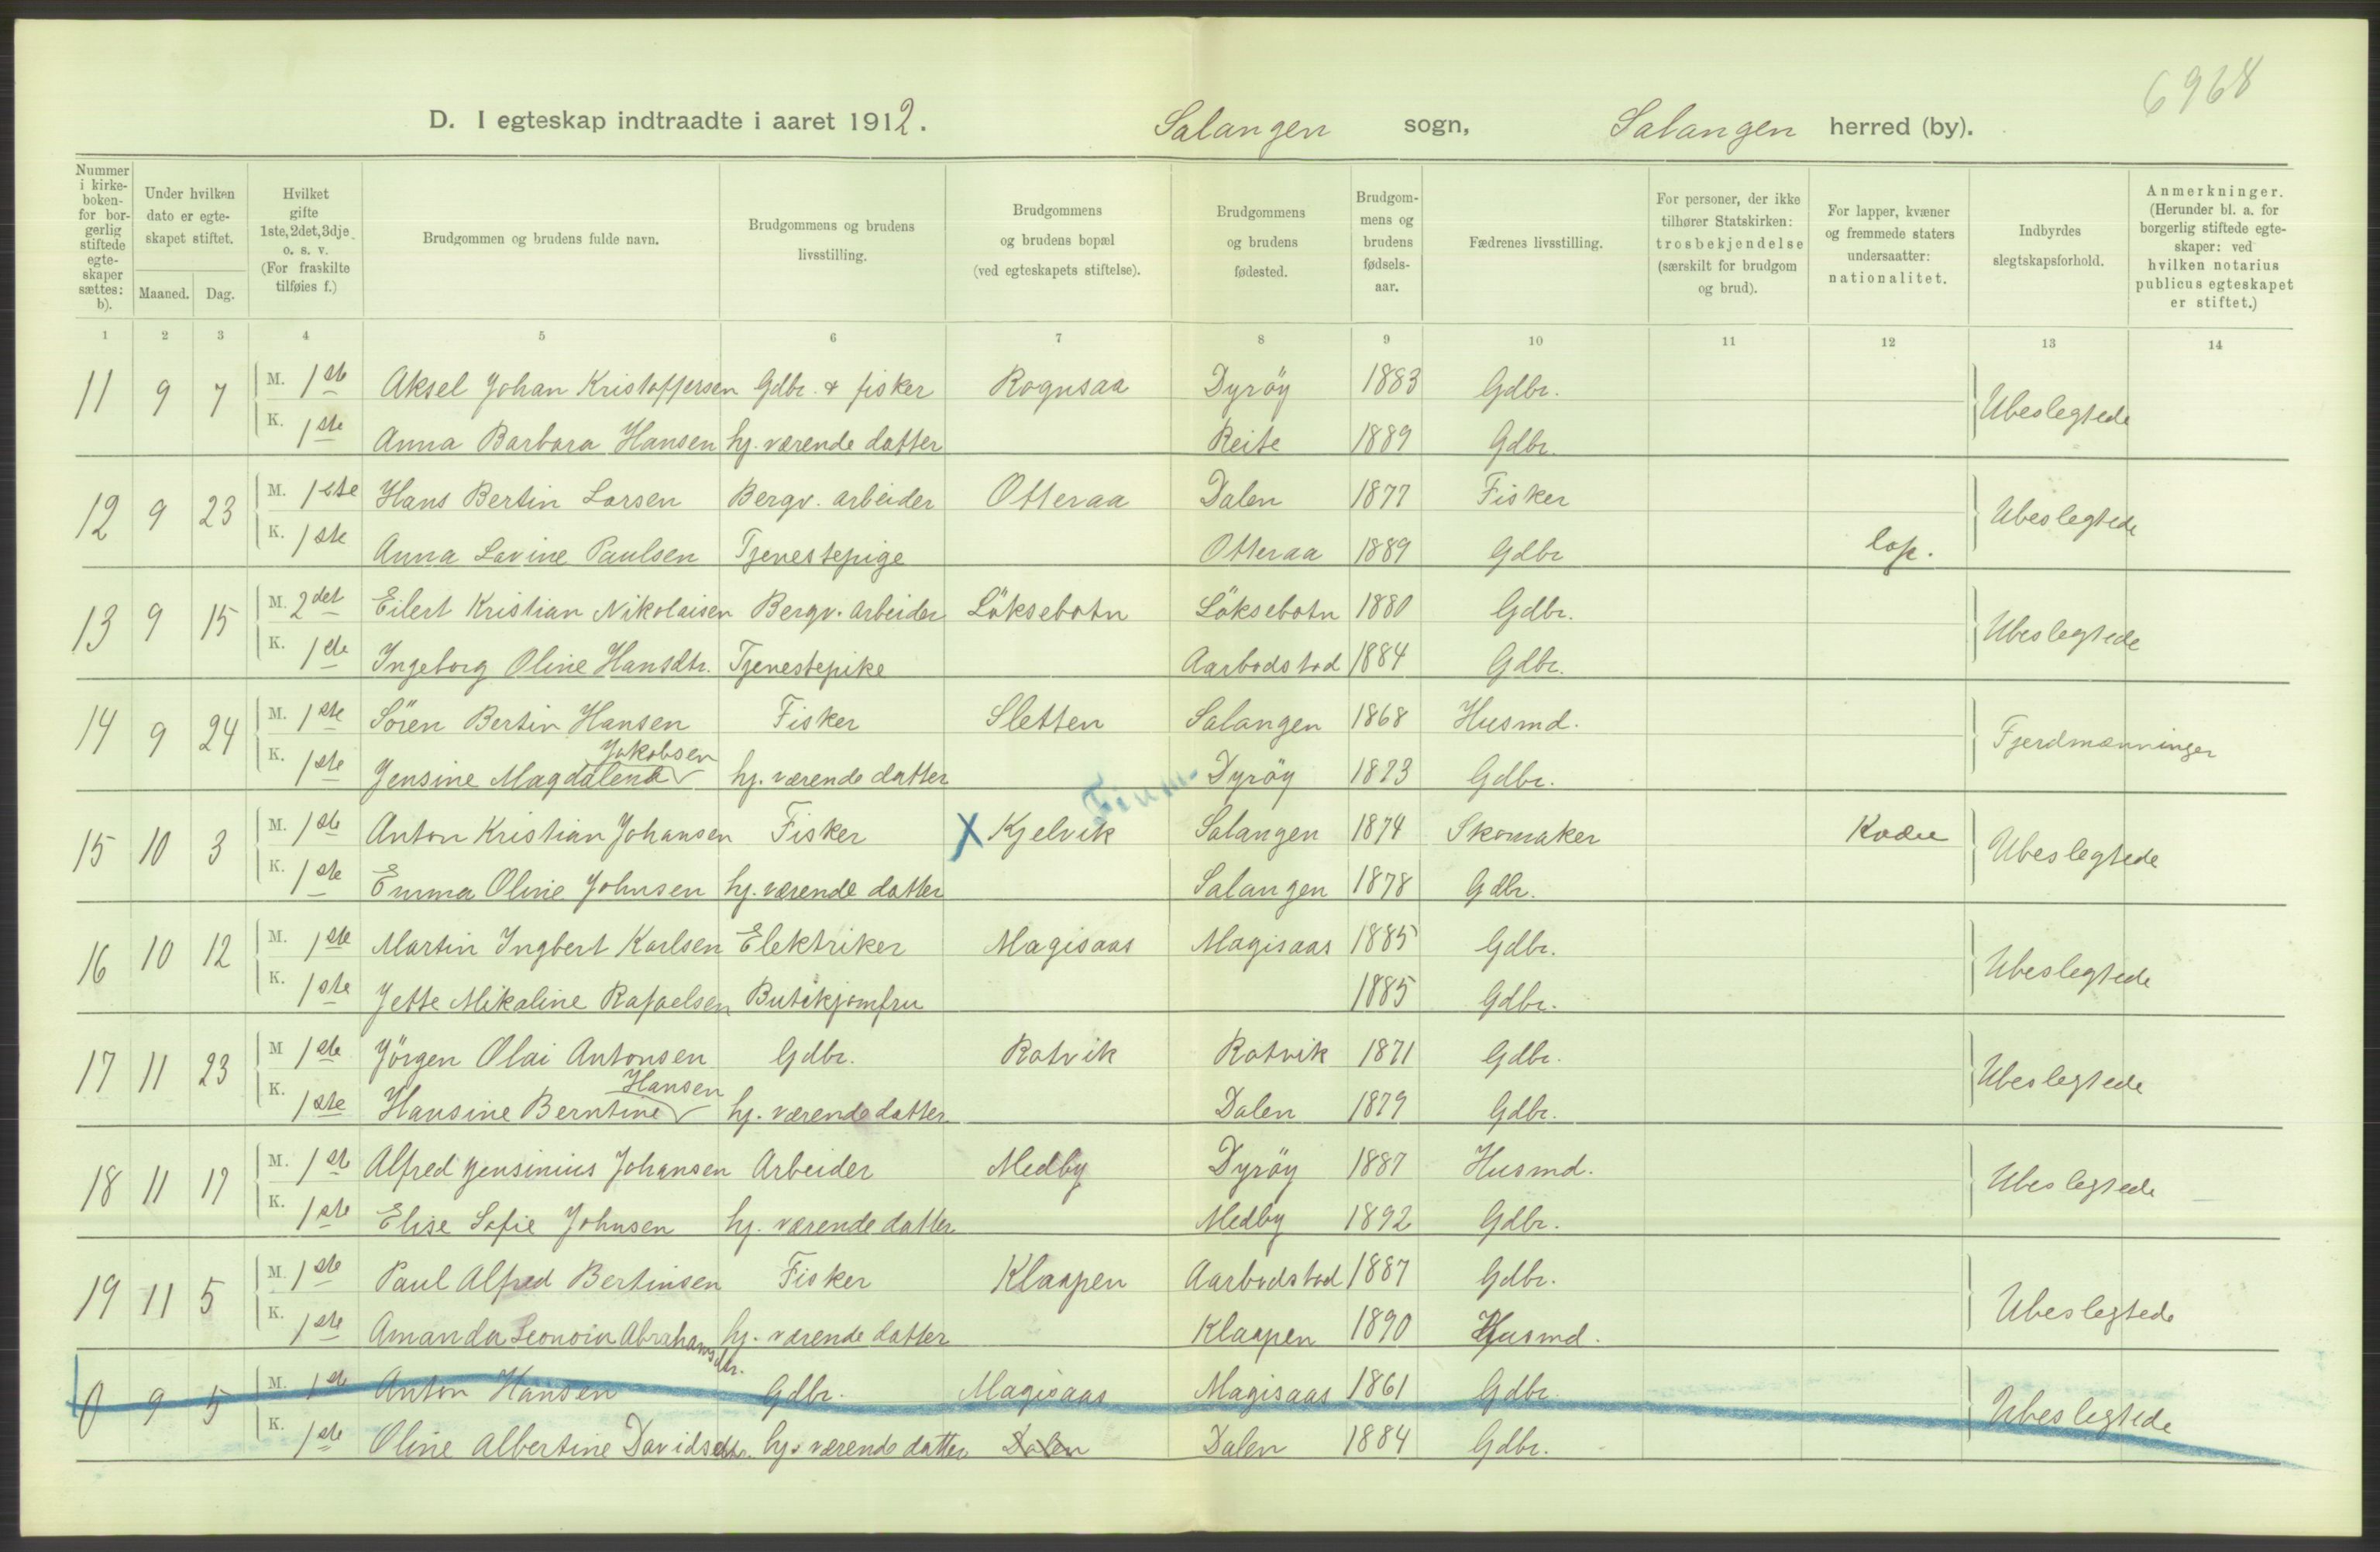 6968
D. I egteskap indtraadte i aaret 1912. Salangen sogn, Salangen herred (by).
Nummer i kirkeboken- for borgerlig stiftede egteskaper sættes: b). Under hvilken dato er egteskapet stiftet. Maaned. Dag. Hvilket gifte 1ste, 2det, 3dje o. s. v. (For fraskilte tilføies f.) Brudgommen og brudens fulde navn. Brudgommens og brudens livsstilling. Brudgommens og brudens bopæl (ved egteskapets stiftelse). Brudgommens og brudens fødested. Brudgommens og brudens fødselsaar. Fædrenes livsstilling. For personer, der ikke tilhører Statskirken: trosbekjendelse (særskilt for brudgom og brud). For lapper, kvæner og fremmede staters undersaatter: nationalitet. Indbyrdes slegtskapsforhold. Anmerkninger. (Herunder bl. a. for borgerlig stiftede egteskaper: ved hvilken notarius publicus egteskapet er stiftet.)
1 2 3 4 5 6 7 8 9 10 11 12 13 14
11 9 7 M. 1ste Aksel Johan Kristoffersen Gdbr. & fisker Rognsaa Dyröy 1883 Gdbr. Ubeslegtede
K. 1ste Anna Barbara Hansen hj. værende datter Reite 1889 Gdbr.
12 9 23 M. 1ste Hans Bertin Larsen Bergv. arbeider Otteraa Dalen 1877 Fisker Ubeslegtede
K. 1ste Anna Lavine Paulsen Tjenestepige Otteraa 1889 Gdbr lap.
13 9 15 M. 2det Eilert Kristian Nikolaisen Bergv. arbeider Löksebotn Löksebotn 1880 Gdbr. Ubeslegtede
K. 1ste Ingeborg Oline Hansdtr. Tjenestepike Aarbodstad 1884 Gdbr.
14 9 24 M. 1ste Sören Bertin Hansen Fisker Sletten Salangen 1868 Husmd. Fjerdmænninger
K. 1ste Jensine Magdalena Jakobsen hj. værende datter Dyröy 1873 Gdbr.
15 10 3 M. 1ste Anton Kristian Johansen Fisker X Kjelvik Finm. Salangen 1874 Skomaker Ubeslegtede
K. 1ste Emma Oline Johnsen hj. værende datter Salangen 1878 Gdbr.
16 10 12 M. 1ste Martin Ingbert Karlsen Elektriker Magisaas Magisaas 1885 Gdbr. Ubeslegtede
K. 1ste Jette Mikaline Rafaelsen Butikjomfru 1885 Gdbr.
17 11 23 M 1ste Jörgen Olai Antonsen Gdbr. Rotvik Rotvik 1871 Gdbr. Ubeslegtede
K. 1ste Hansine Berntine Hansen hj. værende datter Dalen 1879 Gdbr.
18 11 17 M. 1ste Alfred Jensinius Johansen Arbeider Medby Dyröy 1887 Husmd. Ubeslegtede
K. 1ste Elise Sofie Johnsen hj. værende datter Medby 1892 Gdbr.
19 11 5 M. 1ste Paul Alfred Bertinsen Fisker Klaapen Aarbodstad 1887 Gdbr. Ubeslegtede
K. 1ste Amanda Leonoia Abrahamsdtr. hj. værende datter Klaapen 1890 Husmd.
0 9 5 M. 1ste Anton Hansen Gdbr. Magisaas Magisaas 1861 Gdbr. Ubeslegtede
K. 1ste Oline Albertine Davidsdtr. hj. værende datter Dalen Dalen 1884 Gdbr.